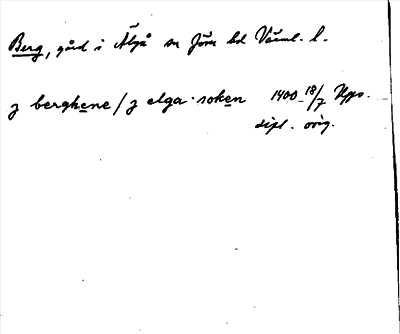 Berg, gård i Älgå sn Jöse hd Värml. l.
ꝫ berghene / ꝫ elga soken 1400 18/7 Upps.
dipl. orig.